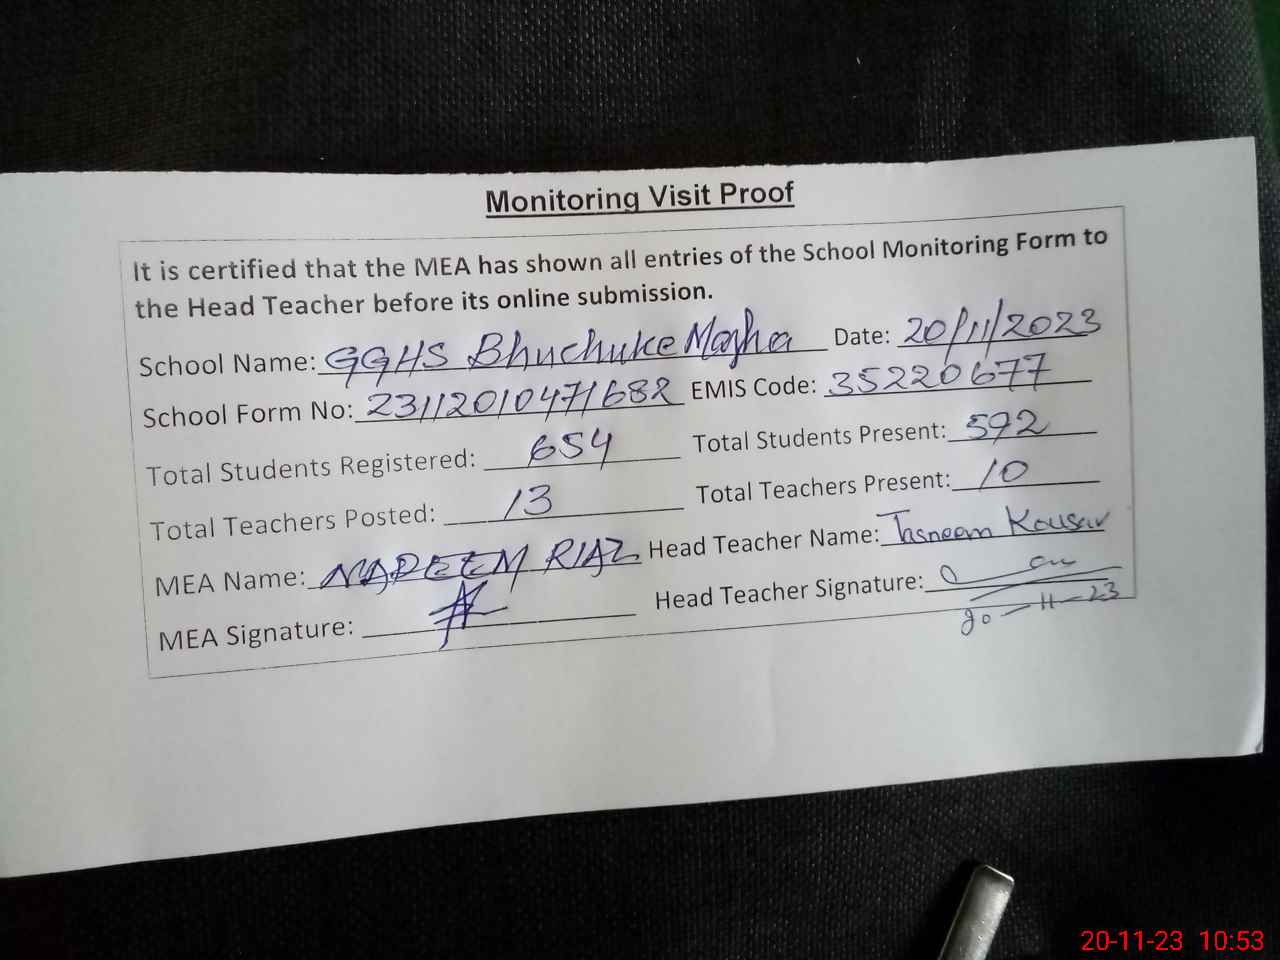 Monitoring Visit Proof
It is certified that the MEA has shown all entries of the School Monitoring Form to
the Head Teacher before its online submission.
School Name: GGHS Bhuchuke Majha Date: 20/11/2023
School Form No: 23112010471682 EMIS Code: 35220677
Total Students Registered: 654 Total Students Present: 592
Total Teachers Posted: 13 Total Teachers Present: 10
MEA Name: NADEEM RIAZ Head Teacher Name: Tasneem Kousar
MEA Signature: Head Teacher Signature:
20-11-23
20-11-23 10:53